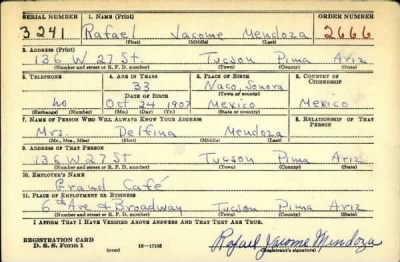 SERIAL NUMBER 1. NAME (Print) ORDER NUMBER
3241 Rafael Jacome Mendoza 2666
(First) (Middle) (Last)
2. ADDRESS (Print)
136 W 27 St. Tucson Pima Ariz
(Number and street or R. F. D. number) (Town) (County) (State)
3. TELEPHONE 4. AGE IN YEARS 5. PLACE OF BIRTH 6. COUNTRY OF CITIZENSHIP
33 Naco, Sonora
DATE OF BIRTH (Town or county)
no Oct 24 1907 Mexico Mexico
(Exchange) (Number) (Mo.) (Day) (Yr.) (State or country)
7. NAME OF PERSON WHO WILL ALWAYS KNOW YOUR ADDRESS 8. RELATIONSHIP OF THAT PERSON
Mrs. Delfina Mendoza
(Mr., Mrs., Miss) (First) (Middle) (Last)
9. ADDRESS OF THAT PERSON
136 W 27 St Tucson Pima Ariz
(Number and street or R. F. D. number) (Town) (County) (State)
10. EMPLOYER'S NAME
Grand Café
11. PLACE OF EMPLOYMENT OR BUSINESS
6th Ave & Broadway Tucson Pima Ariz
(Number and street or R. F. D. number) (Town) (County) (State)
I AFFIRM THAT I HAVE VERIFIED ABOVE ANSWERS AND THAT THEY ARE TRUE.
REGISTRATION CARD
D. S. S. Form 1 (over) Rafael Jacome Mendoza
(Registrant's signature)